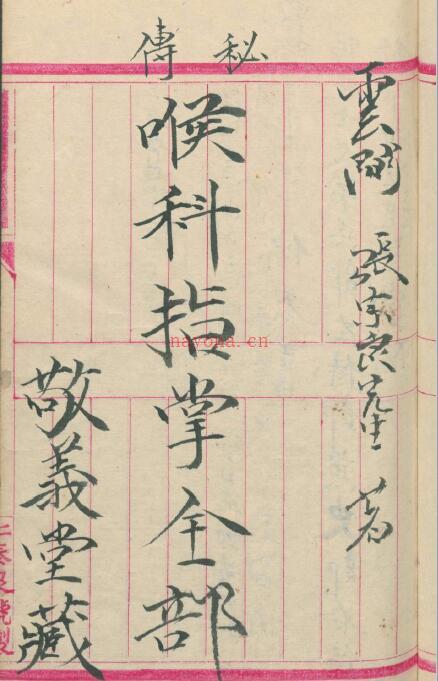 秘傳
雲間 張宗良先生 著
喉科指掌全部
敬義堂藏
nayona.cn